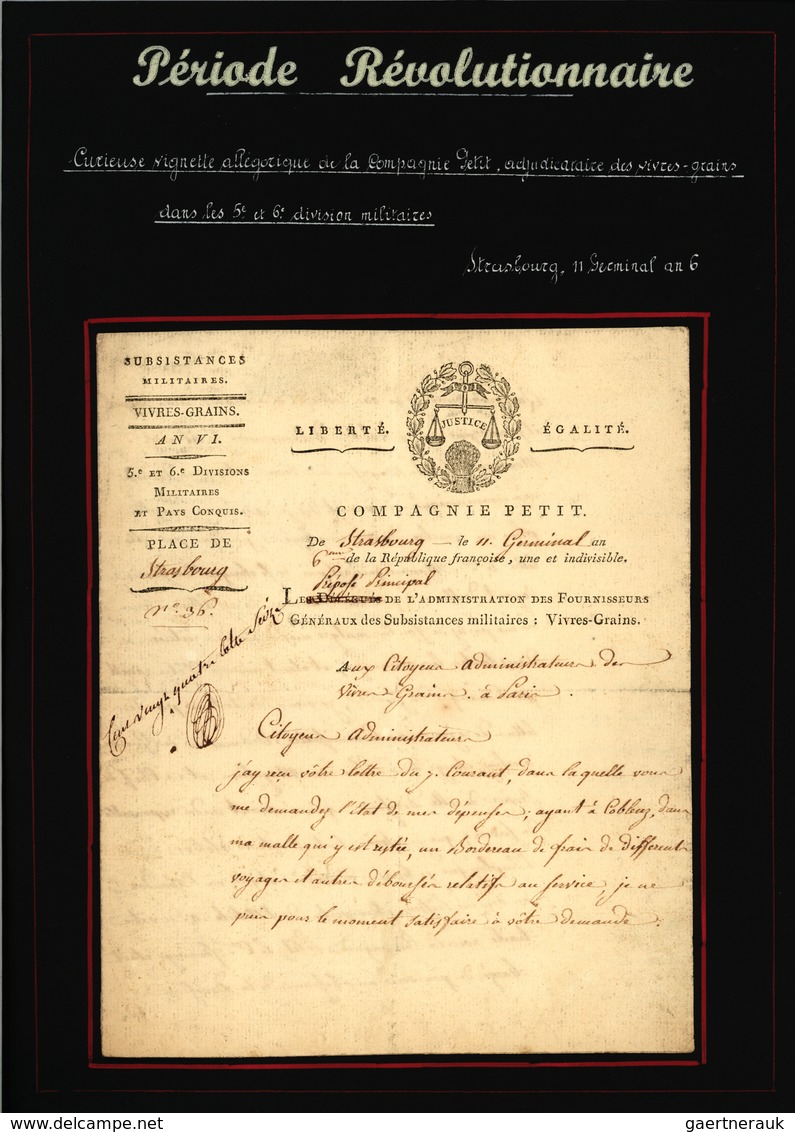 Période Révolutionnaire
Curieuse vignette allégorique de la Compagnie Petit, adjudicataire des vivres-grains
dans les 5e et 6e division militaires
Strasbourg, 11 Germinal an 6
SUBSISTANCES
MILITAIRES.
VIVRES-GRAINS.
AN VI.
5.e ET 6.e DIVISIONS
MILITAIRES
ET PAYS CONQUIS.
PLACE DE
Strasbourg
n.o 36.
LIBERTÉ.
JUSTICE
ÉGALITÉ.
COMPAGNIE PETIT.
De Strasbourg le 11. Germinal an
6eme de la République françoise, une et indivisible.
Préposé Principal
LES DÉLÉGUÉS DE L'ADMINISTRATION DES FOURNISSEURS
GÉNÉRAUX des Subsistances militaires : VIVRES-GRAINS.
Cent vingt quatre
Aux Citoyens Administrateurs des
Vivres Grains. à Paris.
Citoyens Administrateurs
j'ay reçu vôtre lettre du 7. Courant, dans la quelle vous
me demandez l'Etat de mes dépenses; ayant à Coblenz, dans
ma malle qui y est restée, un Bordereau de frais de différents
voyages et autres déboursés relatifs au service, je ne
puis pour le moment satisfaire à vôtre demande.
www.delcampe.net
gaertnerauk